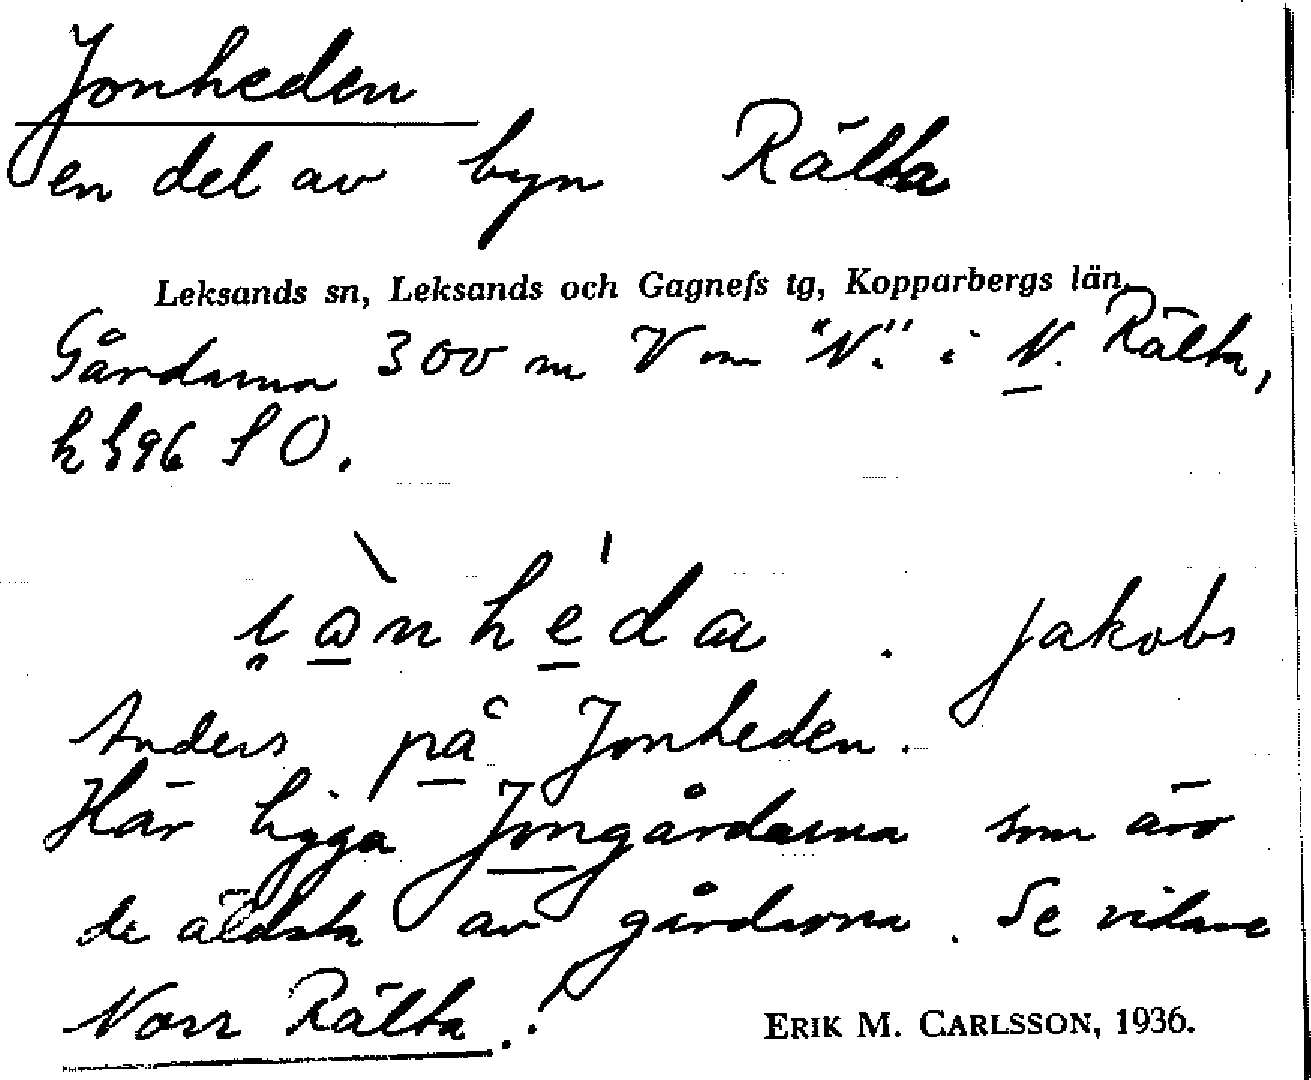 Jonheden
en del av byn Rälta
Leksands sn, Leksands och Gagnefs tg, Kopparbergs län.
Gårdarna 300 m V om "N." i N. Rälta,
k h96 SO.
i̯ònhéda . Jakobs
Anders på Jonheden.
Här ligga Jongårdarna som äro
de äldsta av gårdarna. Se vidare
Norr Rälta!
ERIK M. CARLSSON, 1936.